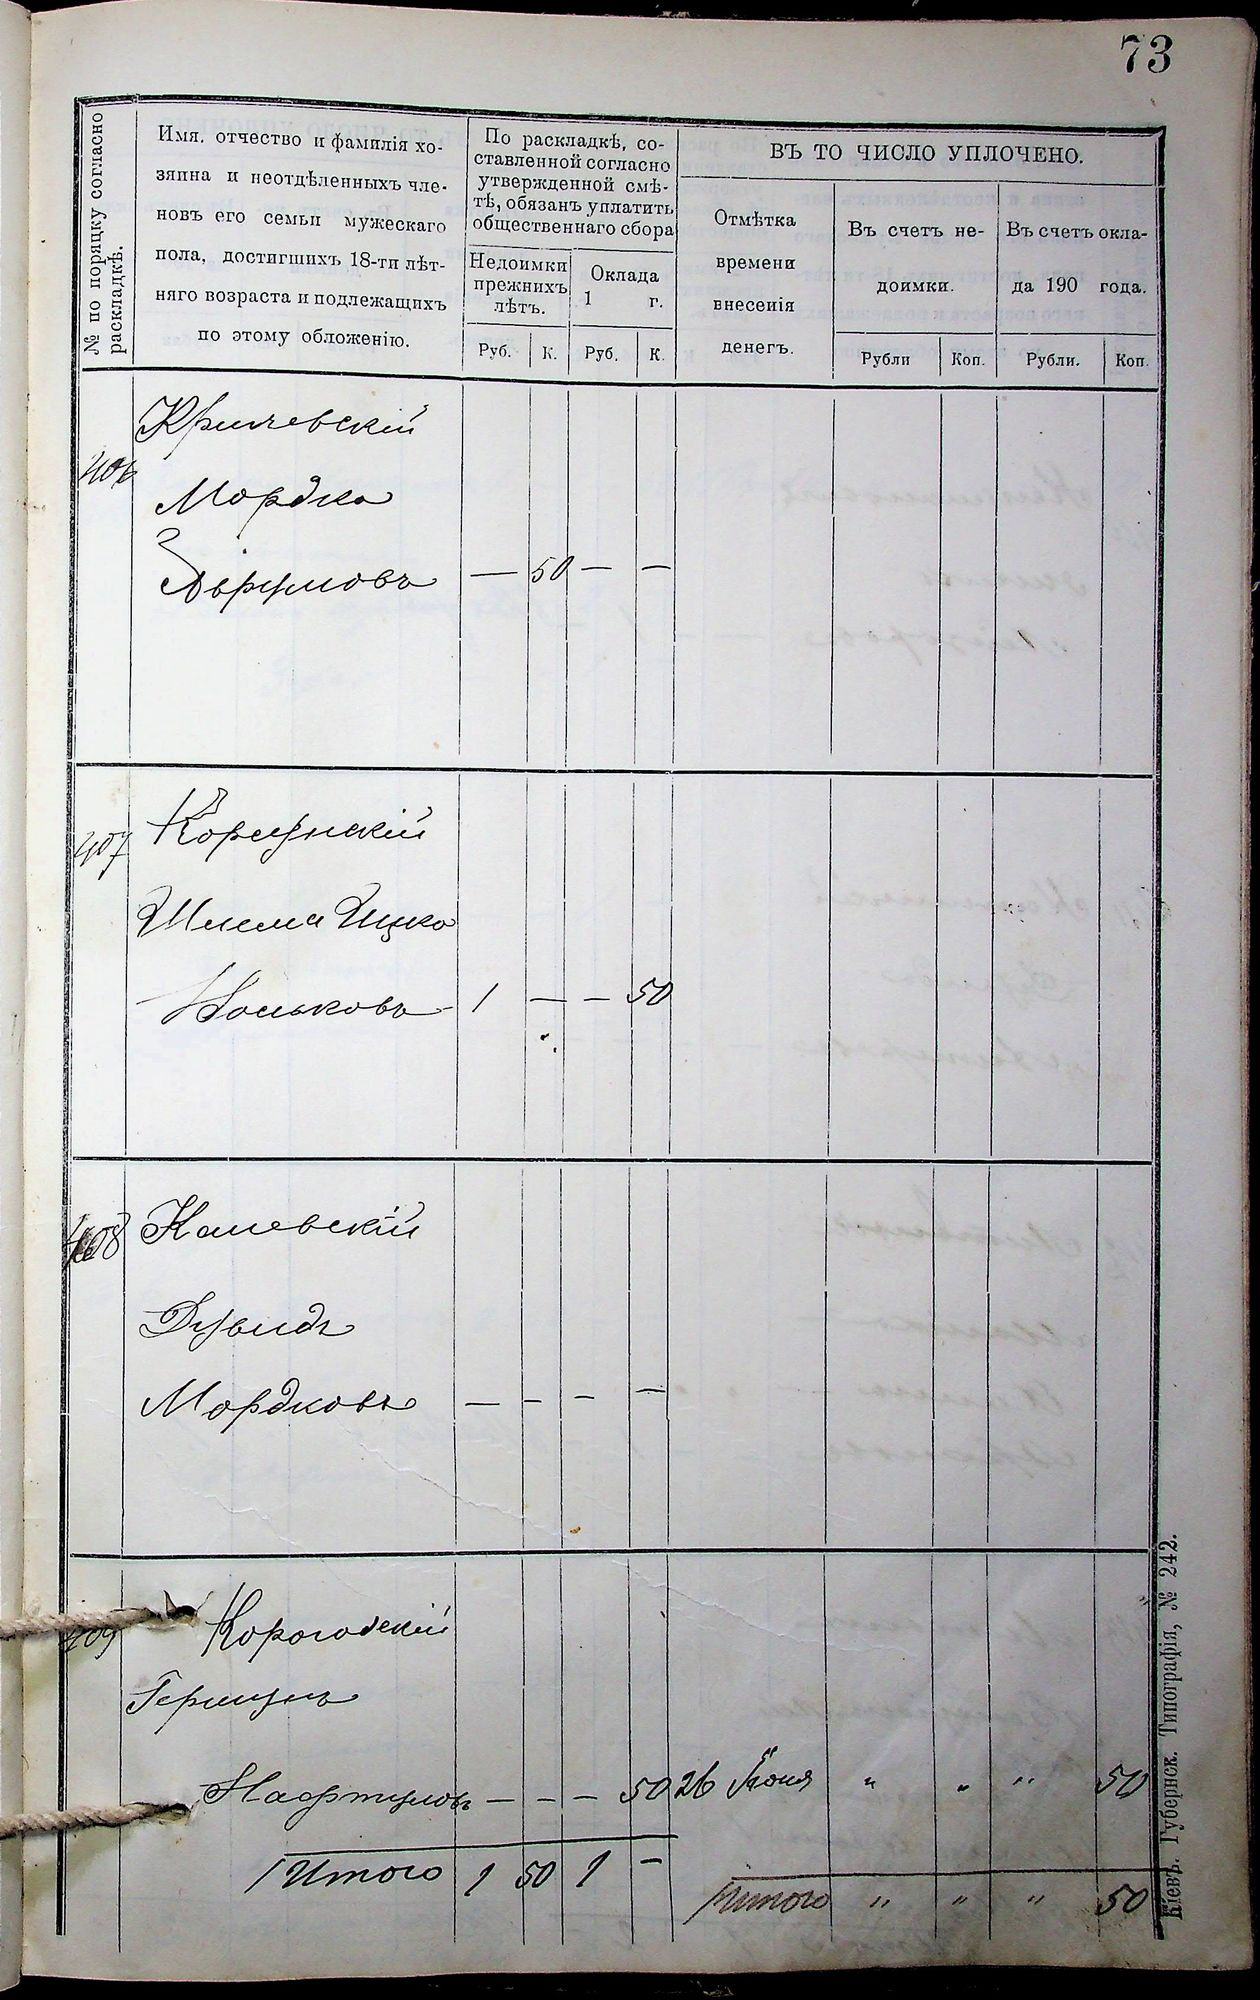 73
№ по порядку согласно
раскладкѣ.
Имя, отчество и фамилія хо-
зяина и неотдѣленныхъ чле-
новъ его семьи мужескаго
пола, достигшихъ 18-ти лѣт-
няго возраста и подлежащихъ
по этому обложенію.
По раскладкѣ, со-
ставленной согласно
утвержденной смѣ-
тѣ, обязанъ уплатить
общественнаго сбора
Недоимки
прежнихъ
лѣтъ.
Оклада
1 г.
Руб. К. Руб. К.
ВЪ ТО ЧИСЛО УПЛОЧЕНО.
Отмѣтка
времени
внесенія
денегъ.
Въ счетъ не-
доимки.
Въ счетъ окла-
да 190 года.
Рубли Коп. Рубли. Коп.
406 Кричевскій
Мордко
Абрумовъ — 50 — —
407 Корсунскій
Шлема Ицко
Іоськовъ 1 — — 50
408 Каневскій
Дувидъ
Мордковъ — — — —
409 Корогодскій
Гершунъ
Нафтуловъ — — — 50 26 Іюня " " " 50
Итого 1 50 1 —
Итого " " " 50
Кіевъ. Губернск. Типографія, № 242.